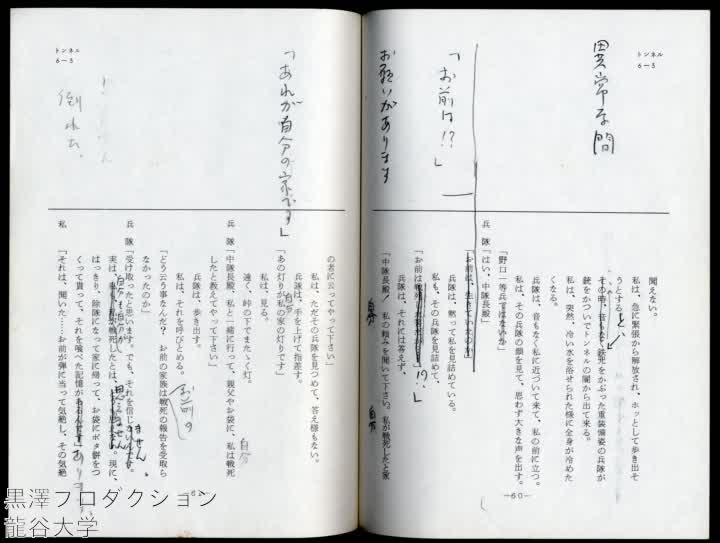 トンネル
6－5
異常な間
「お前は!?」
お願いがあります
聞えない。
私は、急に緊張から解放され、ホッとして歩き出そ
うとする。
その時、音もなく、鉄兜をかぶった重装備姿の兵隊が
銃をかついでトンネルの闇から出て来る。
私は、突然、冷い水を浴せられた様に全身が冷めた
くなる。
兵隊は、音もなく私に近づいて来て、私の前に立つ。
私は、その兵隊の顔を見て、思わず大きな声を出す。
「野口一等兵ではないか」
兵　隊「はい、中隊長殿」
「お前は、生きていたのか」
兵隊は、黙って私を見詰めている。
私も、その兵隊を見詰めて、
「お前は
!?」
兵隊は、それには答えず、
「中隊長殿！私の頼みを聞いて下さい。私が戦死したと家
自分
自分
―60―
トンネル
6－5
「あれが自分の家です」
倒れた。
の者に云ってやって下さい」
私は、ただその兵隊を見つめて、答え様もない。
兵隊は、手を上げて指差す。
「あの灯りが私の家の灯りです」
自分
私は、見る。
遠く、峠の下でまたゝく灯。
「中隊長殿、私と一緒に行って、親父やお袋に、私は戦死
自分
したと教えてやって下さい」
兵隊は、歩き出す。
私は、それを呼びとめる。
「どう云う事なんだ？　お前の家族は戦死の報告を受取ら
なかったのか」
兵　隊「受け取ったと思います。でも、それを信じ
ません。
実は、
自分も自分が
戦死したとは
思えません
現に、
はっきり、除隊になって家に帰って、お袋にボタ餅をつ
くって貰って、それを喰べた記憶が
あります」
私　「それは、聞いた……お前が弾に当って気絶し、その気絶
黒澤プロダクション
龍谷大学